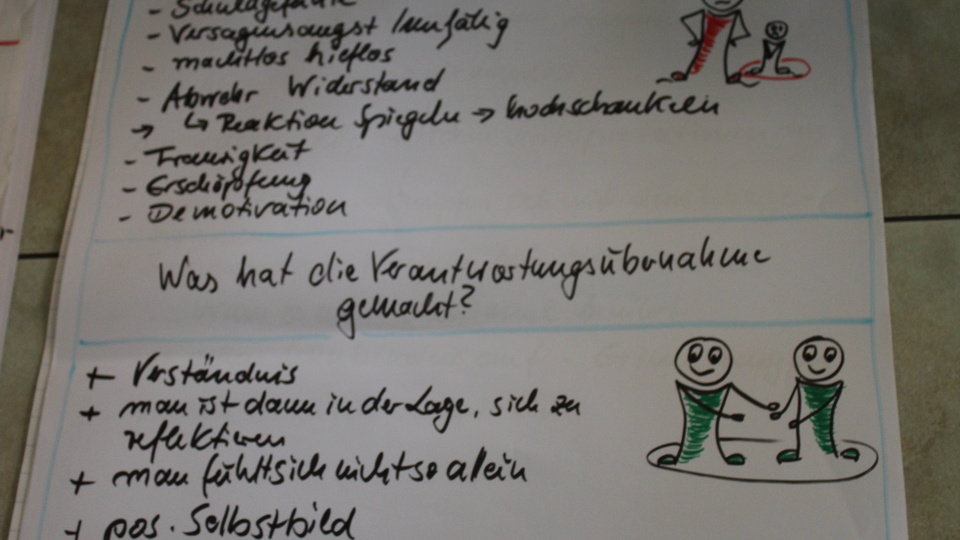 - Schuldgefühle
- Versagensangst / unfähig
- machtlos hilflos
- Abwehr Widerstand
→ ↳ Reaktion Spiegeln → hochschaukeln
- Traurigkeit
- Erschöpfung
- Demotivation
Was hat die Verantwortungsübernahme
gemacht?
+ Verständnis
+ man ist dann in der Lage, sich zu
reflektieren
+ man fühlt sich nicht so allein
+ pos. Selbstbild